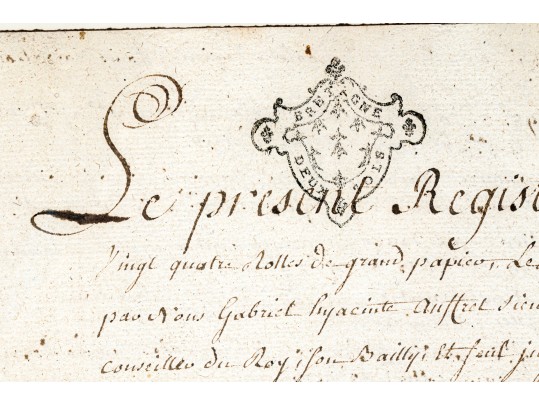 BRETAGNE
DEUX S
Le present Regist
Vingt quatre Rolles de grand papier, Le
par Nous Gabriel hyacinte Auffret sieu
conseiller du Roy, son Bailly, Et seul ju